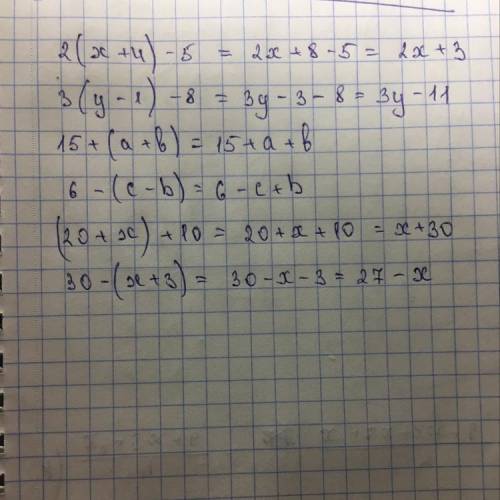 2(x+4)-5 = 2x+8-5 = 2x+3
3(y-1)-8 = 3y-3-8 = 3y-11
15+(a+b) = 15+a+b
6-(c-b) = 6-c+b
(20+x)+10 = 20+x+10 = x+30
30-(x+3) = 30-x-3 = 27-x